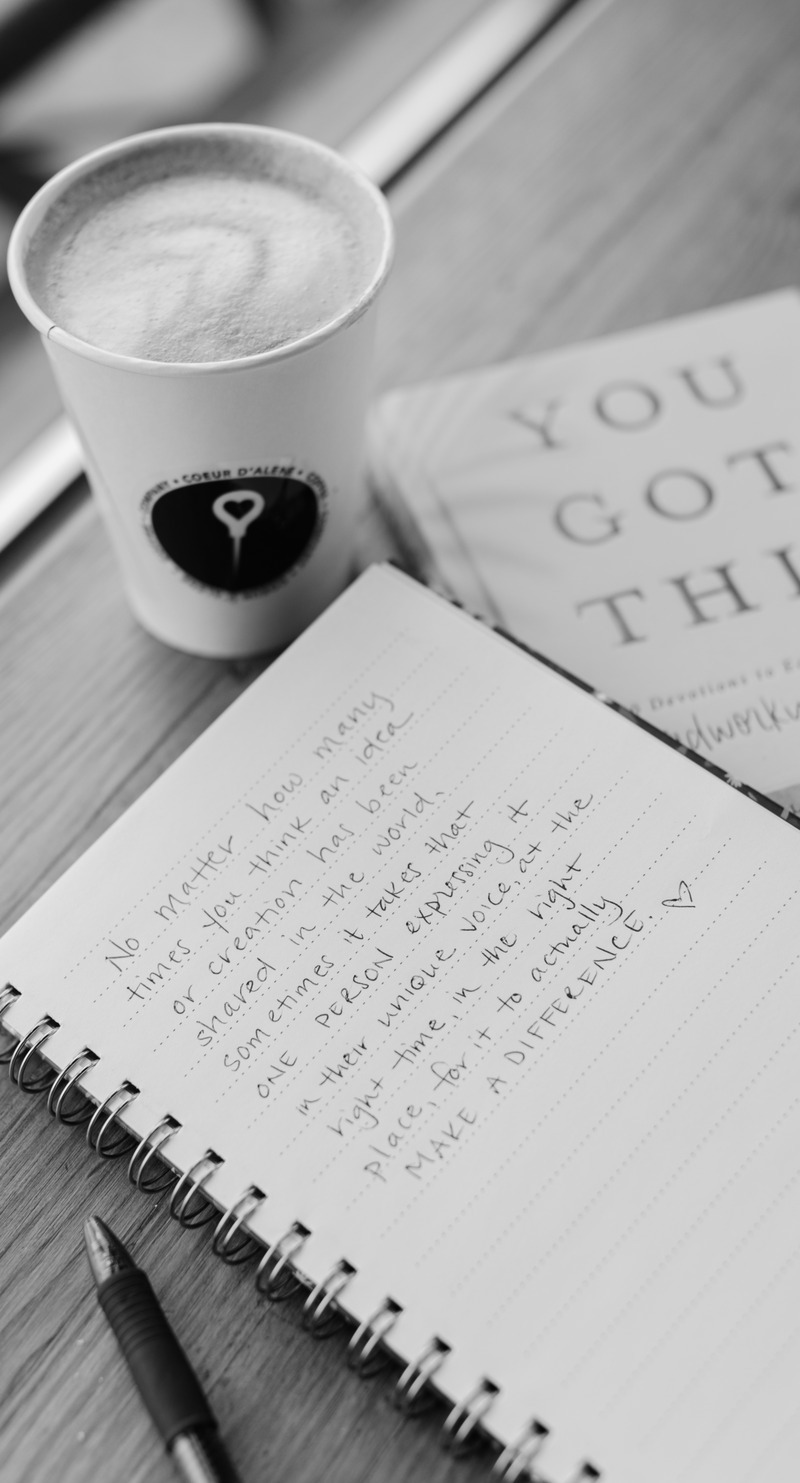 COMPANY • COEUR D'ALENE • COFFEE
YOU
GOT
THI
Devotions to
No matter how many
times you think an idea
or creation has been
shared in the world,
sometimes it takes that
ONE PERSON expressing it
in their unique voice, at the
right time, in the right
place, for it to actually
MAKE A DIFFERENCE. ♡